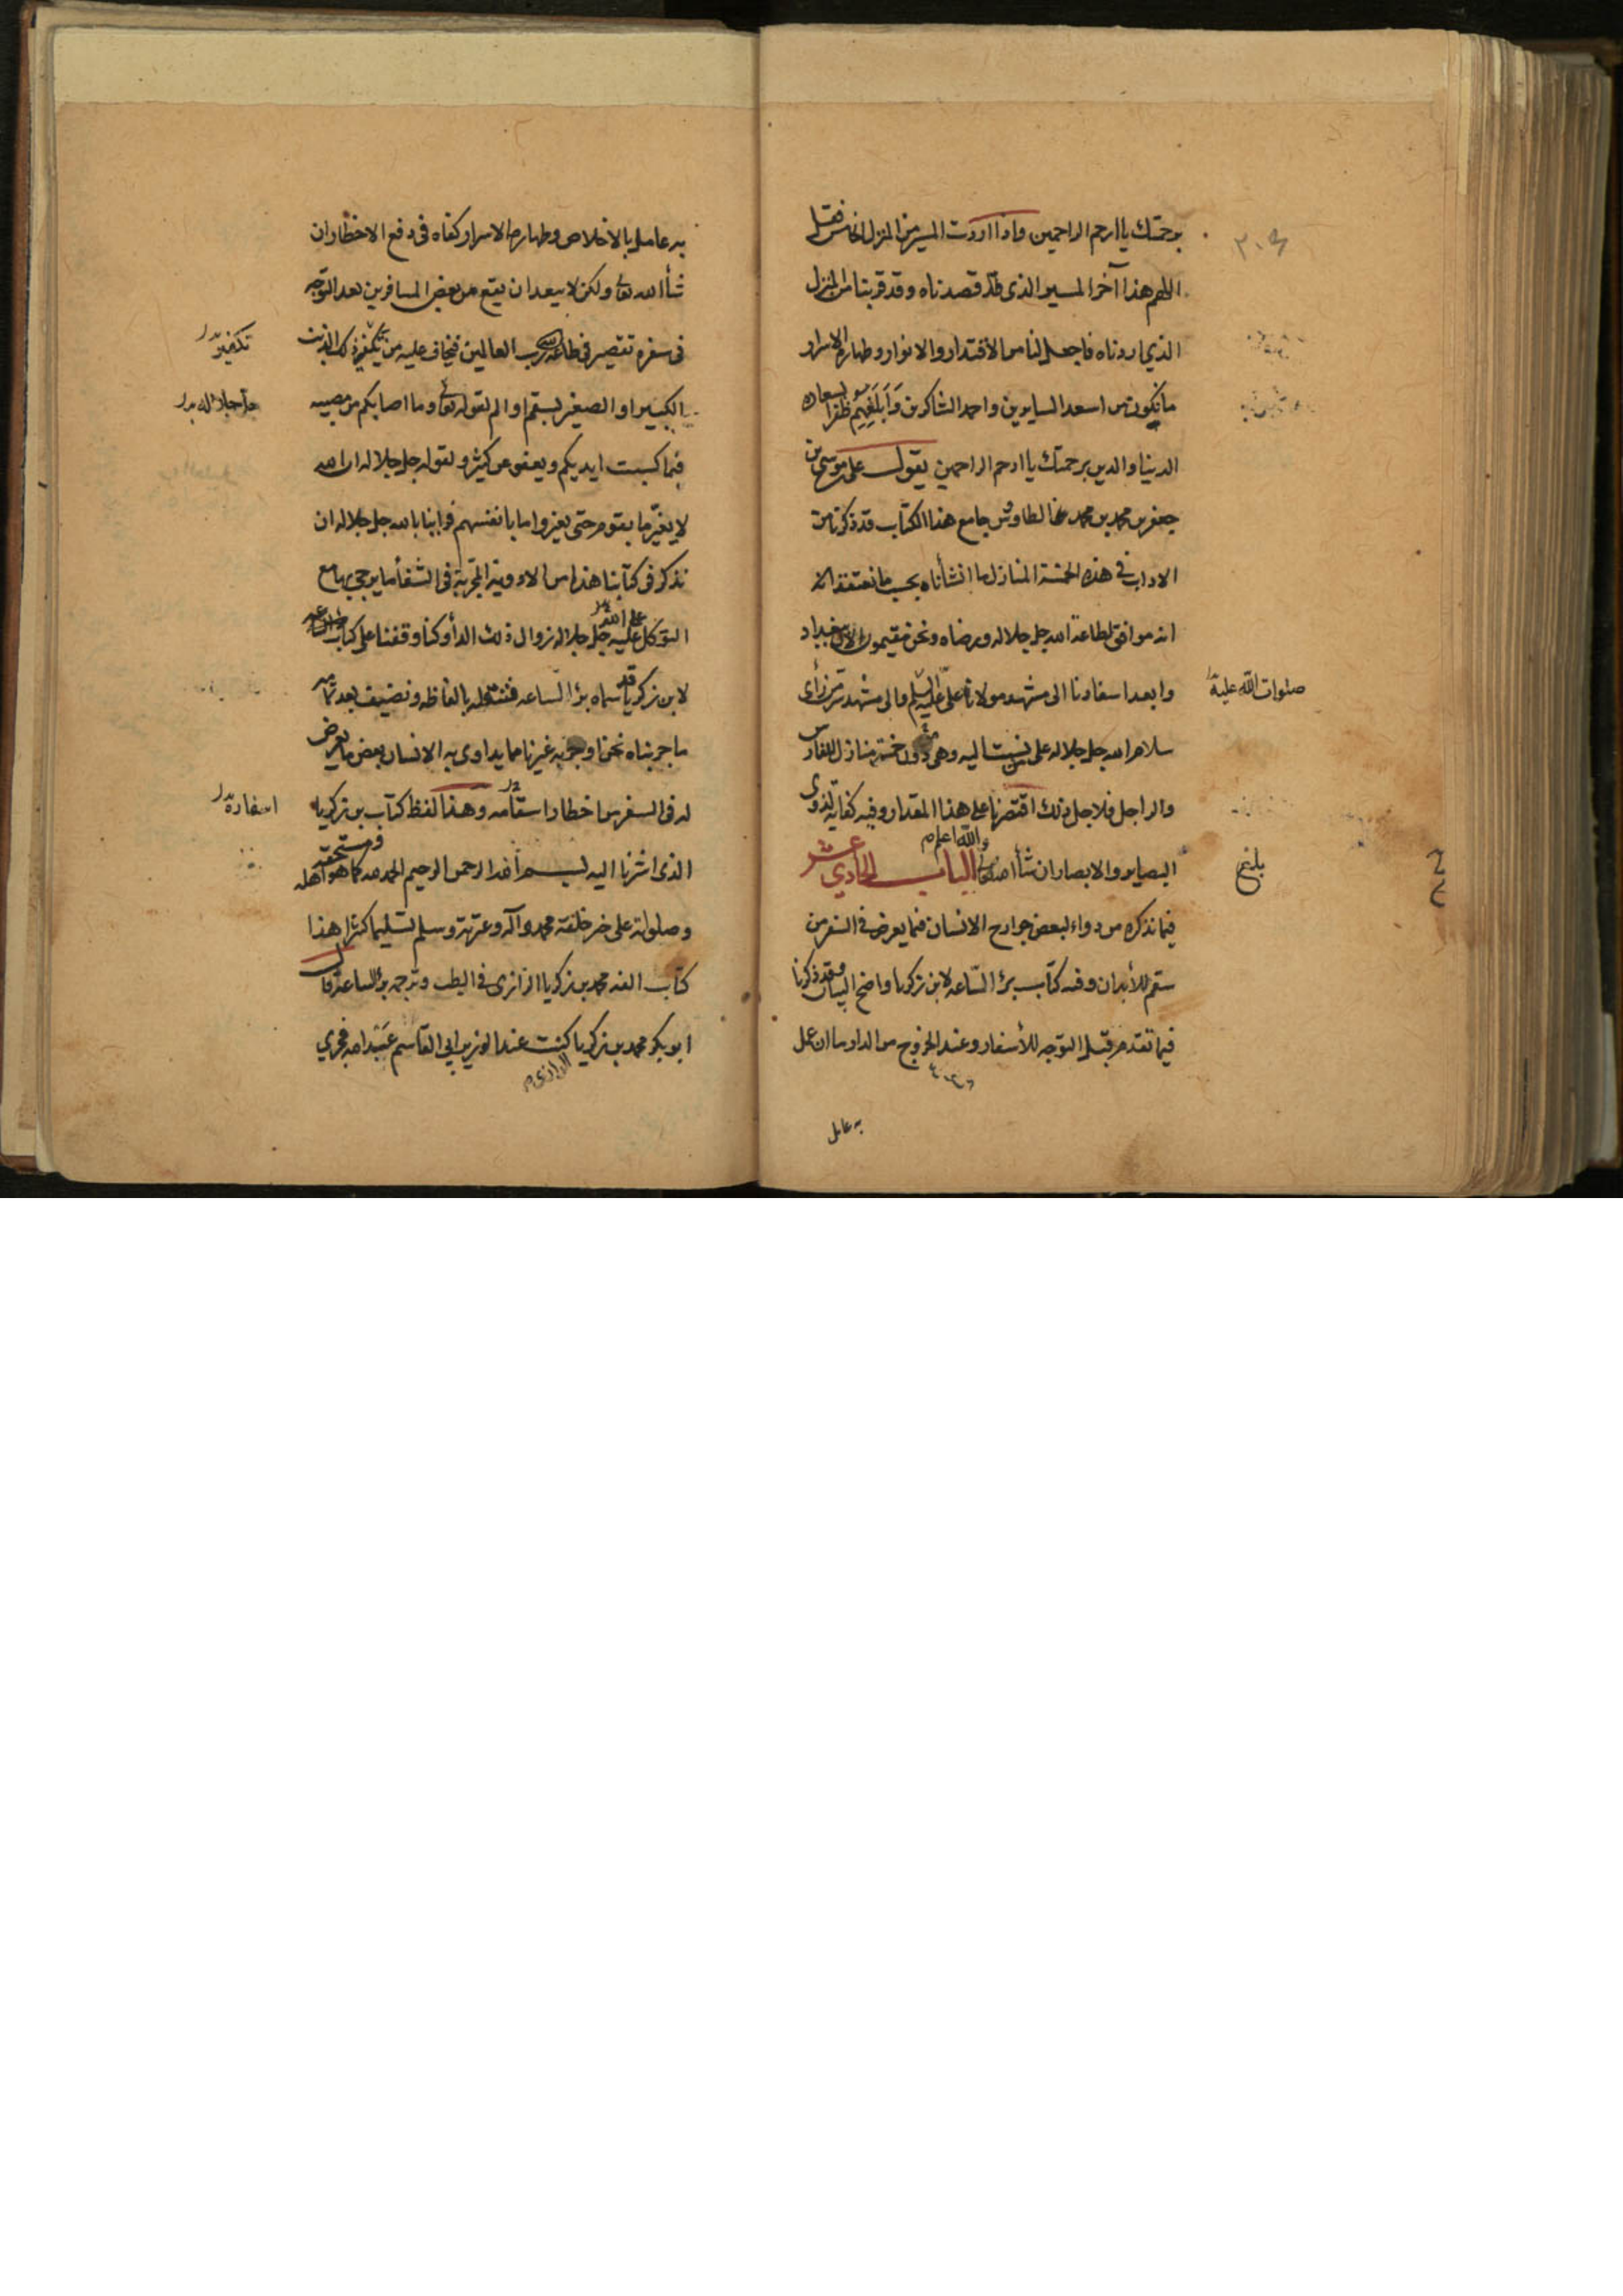 برحمتك يا ارحم الراحمين واذا اردت المسير من المنزل الخامس فقل
اللهم هذا آخر المسير الذي قد قصدناه وقد قربنا من المنزل
الذي اردناه فاجعل لنا من الاقتدار والانوار وطهارة الاسرار
ما نكون من اسعد السايرين واحمد الشاكرين وابلغهم ظفرا بسعاده
الدنيا والدين برحمتك يا ارحم الراحمين يقول على بن موسى بن
جعفر بن محمد بن محمد الطاوس جامع هذا الكتاب قد ذكرنا من
الاداب في هذه الخمسة المنازل ما انشأناه بحسب ما نعتقد انه
انه موافق لطاعة الله جل جلاله ورضاه ونحن مقيمون الان ببغداد
وابعد اسفارنا الى مشهد مولانا على عليه السلم والى مشهد سر من رأى
صلوات الله عليه
سلام الله جل جلاله على من نسبت اليه وهي دون خمسة منازل للفارس
والراجل فلاجل ذلك اقتصرنا على هذا المقدار وفيه كفاية لذوى
والله اعلم
البصاير والابصار ان شأ الله تعالى الباب الحادي عشر
بلغ
فيما نذكره من دواء لبعض جوارح الانسان فيما يعرض في السفر من
سقم للأبدان وفيه كتاب برؤ الساعه لابن زكريا واضح البيان وقد ذكرنا
فيما تقدم قبل التوجه للأسفار وعند الخروج من الدار ما ان عمل
به عامل
به عامل بالاخلاص وطهارة الاسرار كفاه في دفع الاخطار ان
شأ الله تعالى ولكن لا يبعد ان يقع من بعض المسافرين بعد التوجه
فى سفره تقصير في طاعة رب العالمين فيخاف عليه من تكفير ذلك الذنب
تكفير
الكبير او الصغير بسقم او الم لقوله تعالى وما اصابكم من مصيبه
جل جلاله
فبما كسبت ايديكم ويعفو عن كثير ولقوله جل جلاله ان الله
لا يغير ما بقوم حتى يغيروا ما بانفسهم فراينا بالله جل جلاله ان
نذكر في كتابنا هذا من الادوية المجربة في الشفأ ما يرجى بها مع
التوكل على الله جل جلاله زوال ذلك الدأ وكنا وقفنا على كتاب
لابن زكريا قد سماه برؤ الساعه فننقله بالفاظه ونضيف بعد تمامه
ما جربناه نحن او جربه غيرنا مما يداوى به الانسان بعض ما يعرض
له فى السفر من اخطار اسقامه وهذا لفظ كتاب بن زكريا
اسفاره
ومستحقه
الذي اشرنا اليه بسم الله الرحمن الرحيم الحمد لله كما هو اهله
وصلواته على خير خلقه محمد وآله وعترته وسلم تسليما كثيرا هذا
كتاب الفه محمد بن زكريا الرازى في الطب وترجمه برؤ الساعة قال
ابو بكر محمد بن زكريا كنت عند الوزير ابي القاسم عبيد الله فجري
الرازي